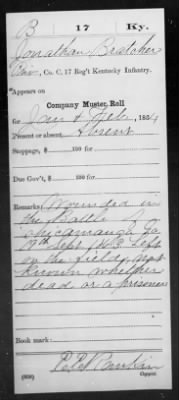 B 17 Ky.
Jonathan Bratcher
Pvr, Co. C, 17 Reg't Kentucky Infantry.
Appears on
Company Muster Roll
for Jan & Feb, 1864
Present or absent, Absent
Stoppage, $ 100 for
Due Gov't, $ 100 for
Remarks: Wounded in
the Battle of
Chicamauga Ga
19th Sept 1863 Left
on the field, not
known whether
dead or a prisoner
Book mark:
(858) Copyist.